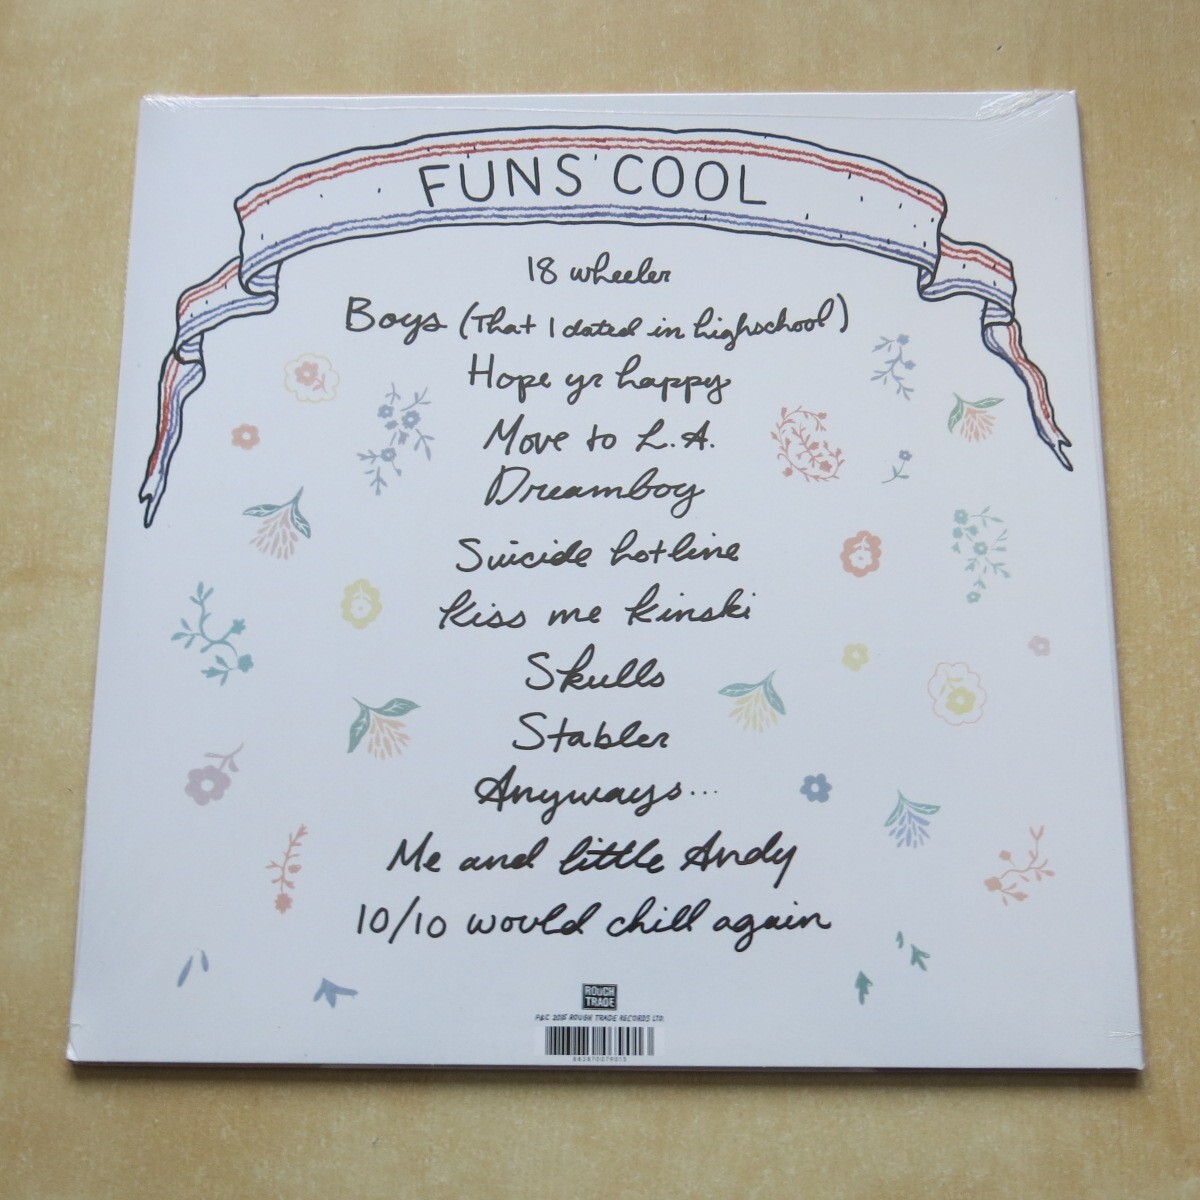 FUNS' COOL
18 wheeler
Boys (That I dated in highschool)
Hope yr happy
Move to L.A.
Dreamboy
Suicide hotline
Kiss me Kinski
Skulls
Stabler
Anyways...
Me and little Andy
10/10 would chill again
ROUGH
TRADE
P&C 2015 ROUGH TRADE RECORDS LTD.